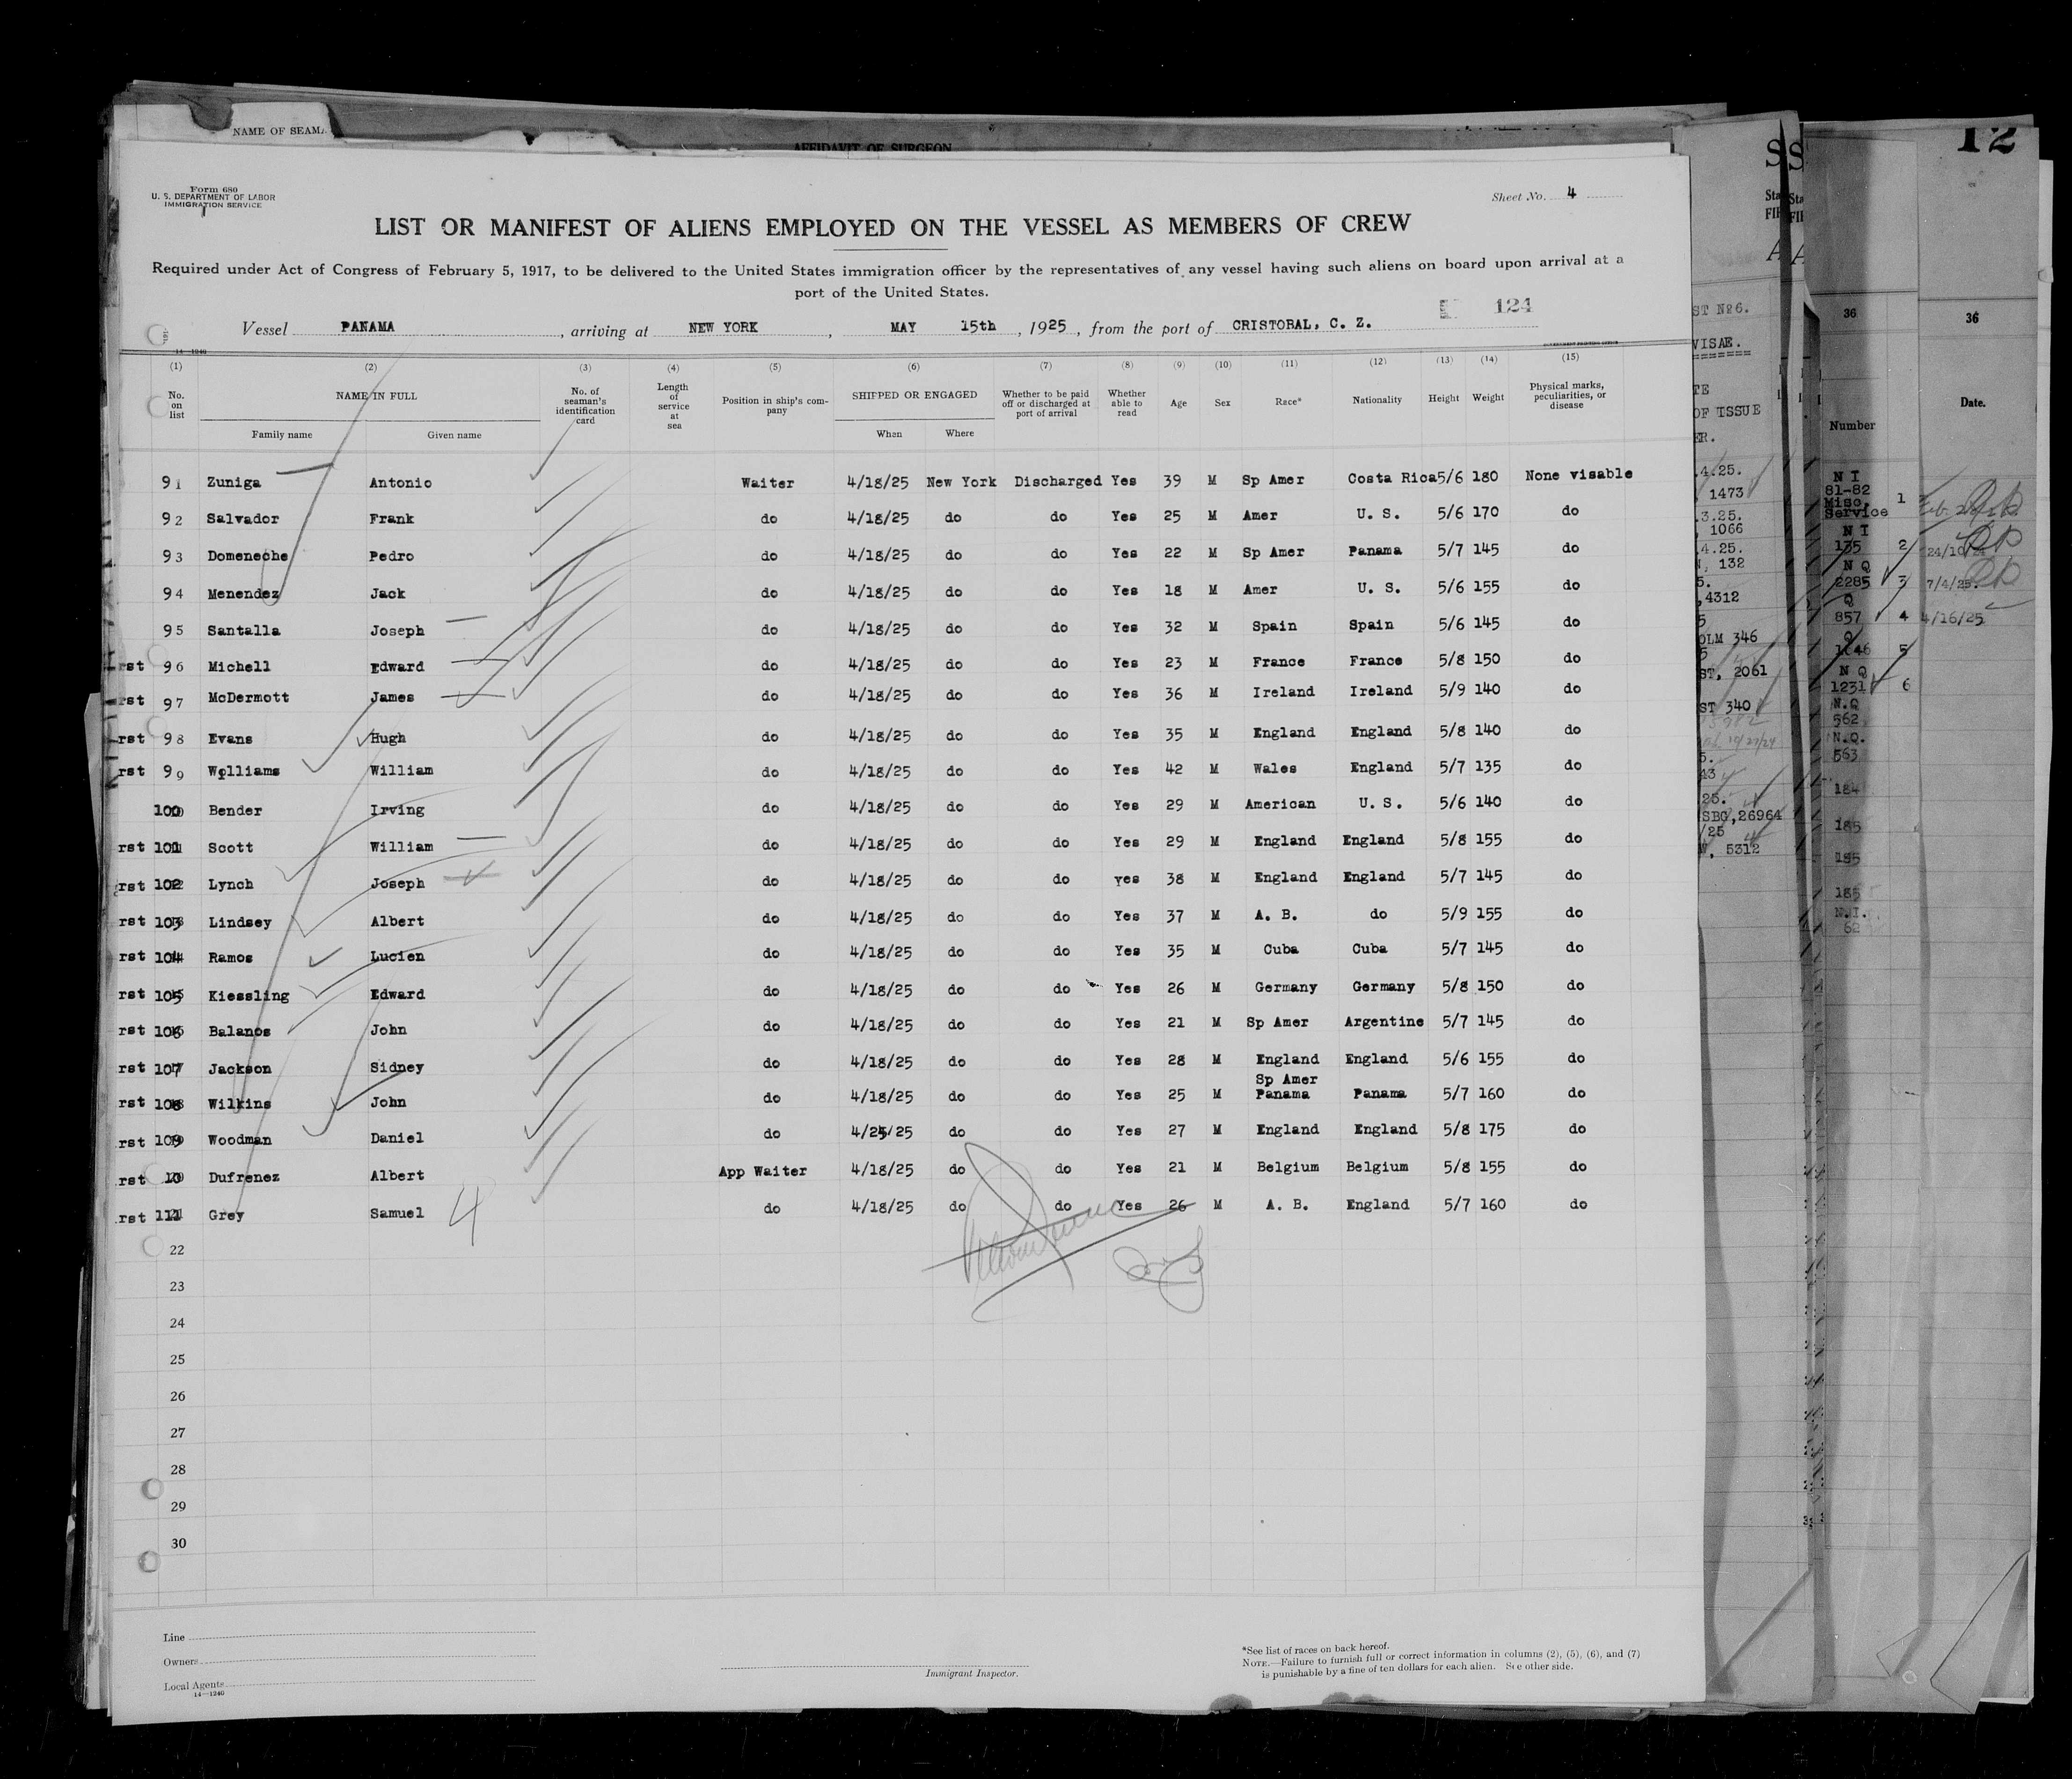 NAME OF SEAMA
AFFIDAVIT OF SURGEON
12
Form 680
U. S. DEPARTMENT OF LABOR
IMMIGRATION SERVICE
Sheet No. 4
LIST OR MANIFEST OF ALIENS EMPLOYED ON THE VESSEL AS MEMBERS OF CREW
Required under Act of Congress of February 5, 1917, to be delivered to the United States immigration officer by the representatives of any vessel having such aliens on board upon arrival at a
port of the United States.
124
Vessel PANAMA, arriving at NEW YORK, MAY 15th, 1925, from the port of CRISTOBAL, C. Z.
14—1240 GOVERNMENT PRINTING OFFICE
(1) (2) (3) (4) (5) (6) (7) (8) (9) (10) (11) (12) (13) (14) (15)
No. on list NAME IN FULL No. of seaman's identification card Length of service at sea Position in ship's company SHIPPED OR ENGAGED Whether to be paid off or discharged at port of arrival Whether able to read Age Sex Race* Nationality Height Weight Physical marks, peculiarities, or disease
Family name Given name When Where
91 Zuniga Antonio Waiter 4/18/25 New York Discharged Yes 39 M Sp Amer Costa Rica 5/6 180 None visable
92 Salvador Frank do 4/18/25 do do Yes 25 M Amer U. S. 5/6 170 do
93 Domeneche Pedro do 4/18/25 do do Yes 22 M Sp Amer Panama 5/7 145 do
94 Menendez Jack do 4/18/25 do do Yes 18 M Amer U. S. 5/6 155 do
95 Santalla Joseph do 4/18/25 do do Yes 32 M Spain Spain 5/6 145 do
rst 96 Michell Edward do 4/18/25 do do Yes 23 M France France 5/8 150 do
rst 97 McDermott James do 4/18/25 do do Yes 36 M Ireland Ireland 5/9 140 do
rst 98 Evans Hugh do 4/18/25 do do Yes 35 M England England 5/8 140 do
rst 99 Wolliams William do 4/18/25 do do Yes 42 M Wales England 5/7 135 do
100 Bender Irving do 4/18/25 do do Yes 29 M American U. S. 5/6 140 do
rst 101 Scott William do 4/18/25 do do Yes 29 M England England 5/8 155 do
rst 102 Lynch Joseph do 4/18/25 do do yes 38 M England England 5/7 145 do
rst 103 Lindsey Albert do 4/18/25 do do Yes 37 M A. B. do 5/9 155 do
rst 104 Ramos Lucien do 4/18/25 do do Yes 35 M Cuba Cuba 5/7 145 do
rst 105 Kiessling Edward do 4/18/25 do do Yes 26 M Germany Germany 5/8 150 do
rst 106 Balanos John do 4/18/25 do do Yes 21 M Sp Amer Argentine 5/7 145 do
rst 107 Jackson Sidney do 4/18/25 do do Yes 28 M England England 5/6 155 do
Sp Amer
rst 108 Wilkins John do 4/18/25 do do Yes 25 M Panama Panama 5/7 160 do
rst 109 Woodman Daniel do 4/25/25 do do Yes 27 M England England 5/8 175 do
rst 10 Dufrenez Albert App Waiter 4/18/25 do do Yes 21 M Belgium Belgium 5/8 155 do
rst 111 Grey Samuel 4 do 4/18/25 do do Yes 26 M A. B. England 5/7 160 do
22
23
24
25
26
27
28
29
30
Line
Owners
Local Agents
14—1240
Immigrant Inspector.
*See list of races on back hereof.
NOTE.—Failure to furnish full or correct information in columns (2), (5), (6), and (7)
is punishable by a fine of ten dollars for each alien. See other side.
ST Nº6.
VISAE.
TE
OF ISSUE
ER.
.4.25.
1473
.3.25.
1066
.4.25.
132
5.
,4312
OLM 346
ST, 2061
ST 340
43
25.
SBG,26964
/25
5312
36
Number
N I
81-82
Misc,
Service 1
N I
135 2
N Q
2285 3
Q
857 4
Q
1646 5
N Q
1231 6
N.Q
562
N.Q.
563
184
185
185
185
N.I.
62
36
Date.
24/10/24
7/4/25.
4/16/25